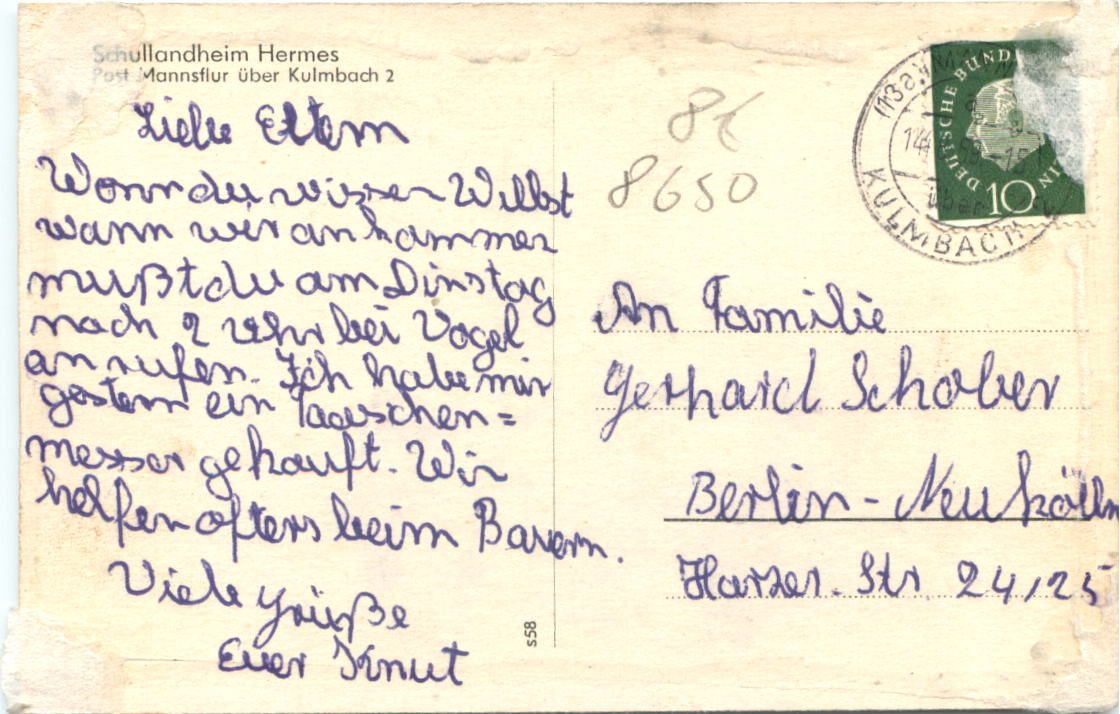 Schullandheim Hermes
Post Mannsflur über Kulmbach 2
Liebe Eltern
Wenn du wissen Willst
wann wir ankommen
mußt du am Dinstag
nach 2 Uhr bei Vogel
anrufen. Ich habe mir
gestern ein Taaschen=
messer gekauft. Wir
helfen öfters beim Bauern.
Viele Grüße
Euer Knut
s58
8€
8650
DEUTSCHE BUND
10
KULMBACH
An Familie
Gerhard Schober
Berlin-Neukölln
Harzer. Str. 24/25